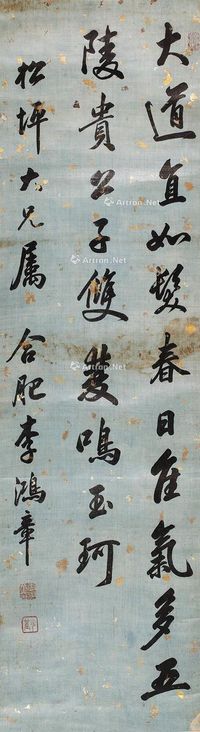 大道直如髮春日佳氣多五
陵貴公子雙雙鳴玉珂
松坪大兄屬 合肥李鴻章
Artron.Net